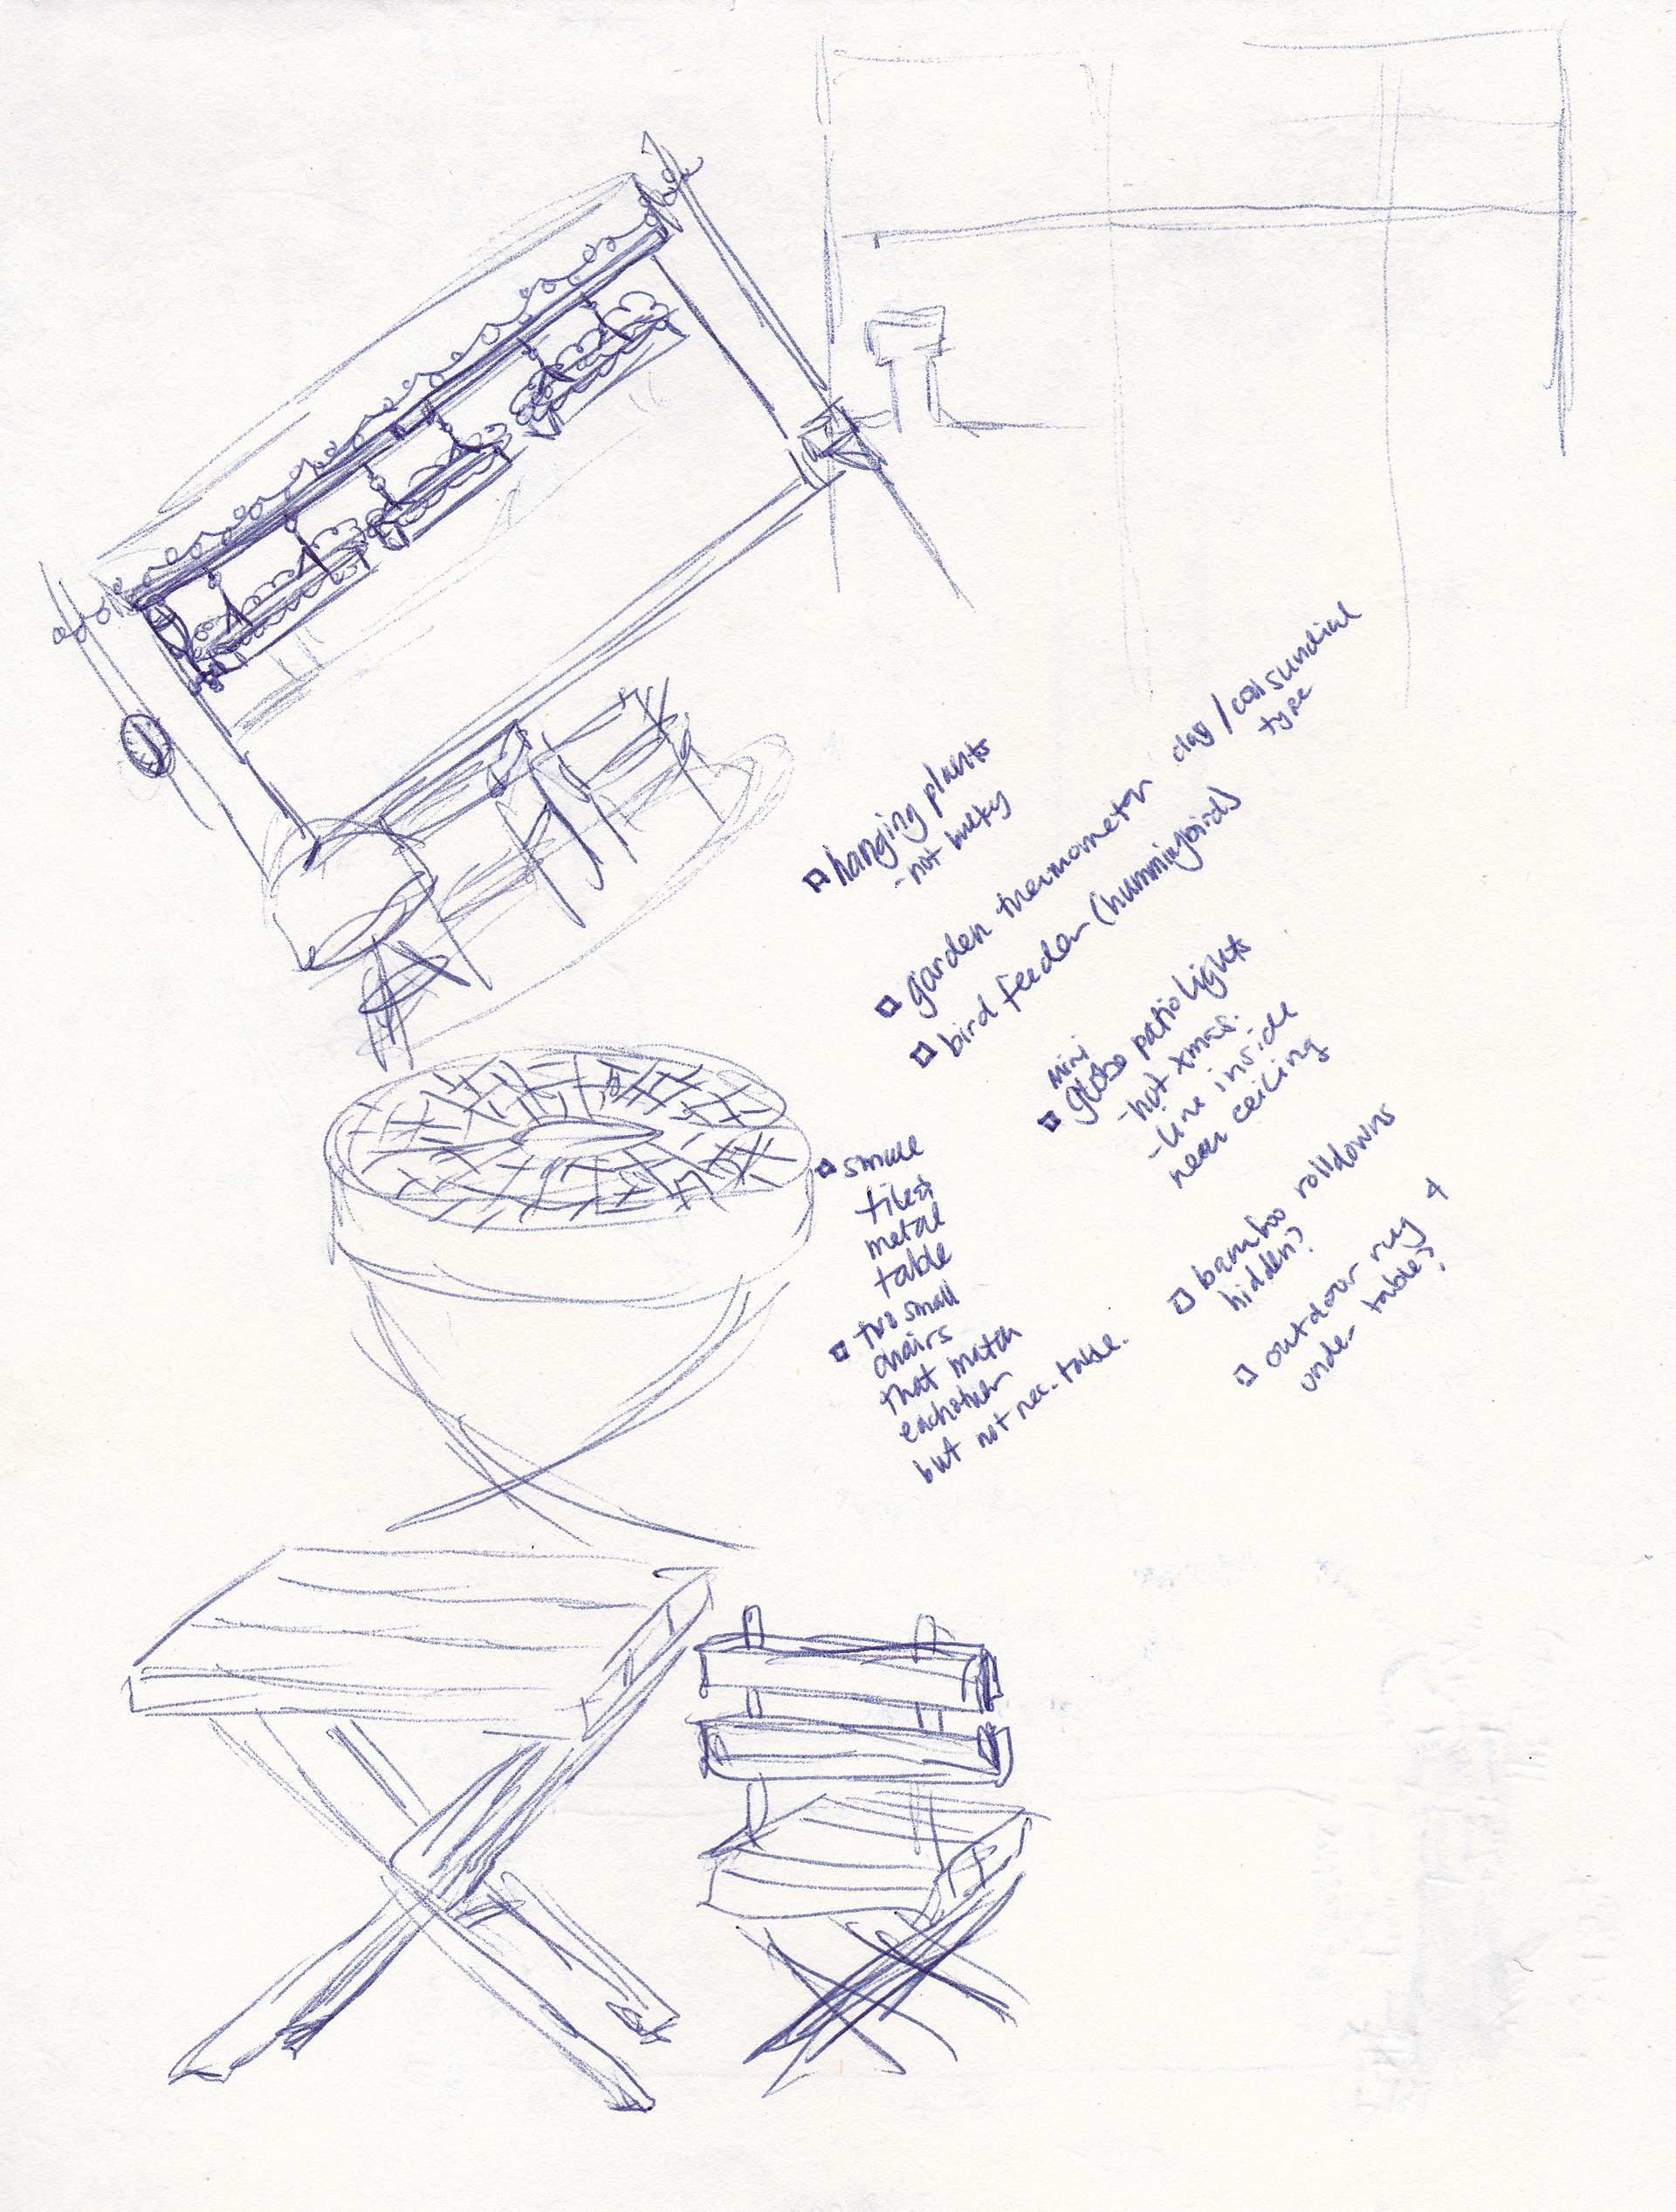 hanging plants
- not bulky
garden thermometer clay / sundial
type
bird feeder (hummingbirds)
mini
globe patio lights
- not xmas.
- line inside
near ceiling
small
tiled
metal
table
two small
chairs
that match
eachother
but not nec. table.
bamboo rolldowns
hidden?
outdoor rug
under table?